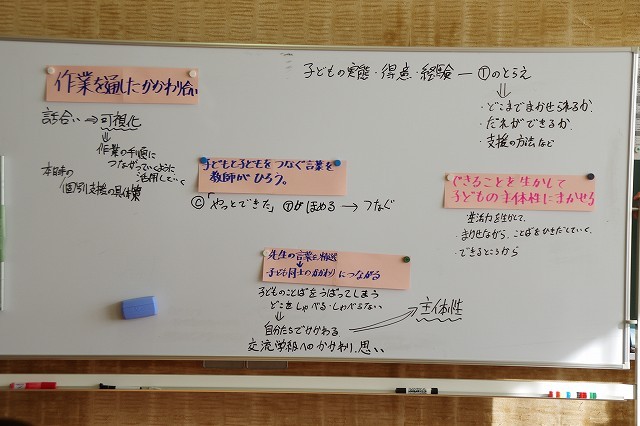 子どもの実態・得意・経験 ― Ⓣのとらえ
⇓
・どこまでまかせられるか
・だれができるか
・支援の方法など
作業を通したかかわり合い
話合い → 可視化
⇓
作業の手順に
つながっていくように
活用していく
本時の
個別支援の具体策
子どもと子どもをつなぐ言葉を
教師がひろう。
Ⓒ「やっとできた」 Ⓣがほめる → つなぐ
できることを生かして
子どもの主体性にまかせる
生活力を生かして
・まかせながら、ことばをひきだしていく、
・できるところから
先生の言葉を精選
↓
子ども同士のかかわりにつながる
子どものことばをうばってしまう
どこをしゃべる・しゃべらない
↓
自分たちでかかわる → 主体性
交流学級へのかかわり、思い